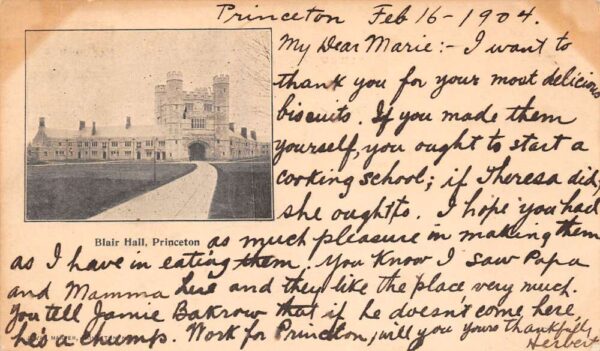 Princeton Feb 16-1904.
My Dear Marie:- I want to
thank you for your most delicious
biscuits. If you made them
yourself, you ought to start a
cooking school; if Theresa did,
she ought to. I hope you had
Blair Hall, Princeton
as much pleasure in making them
as I have in eating them. You know I saw Papa
and Mamma here and they like the place very much.
You tell Jamie Bakrow that if he doesn't come here,
he's a chump. Work for Princeton, will you yours thankfully
Herbert